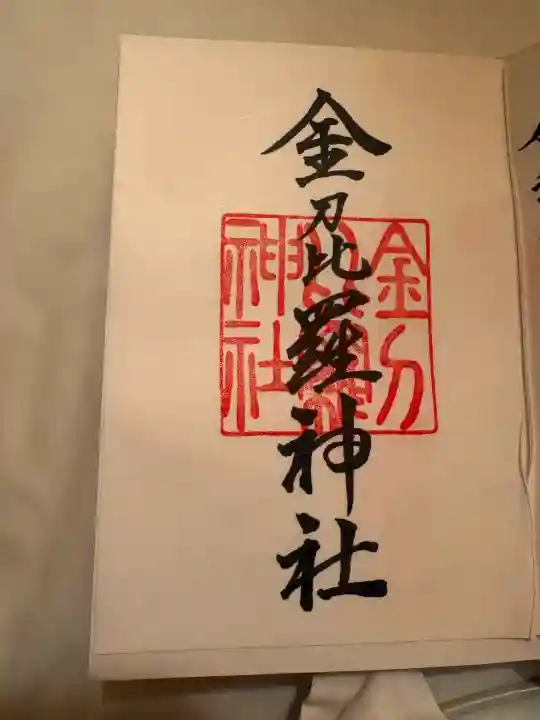 金刀比羅神社
金刀
神社